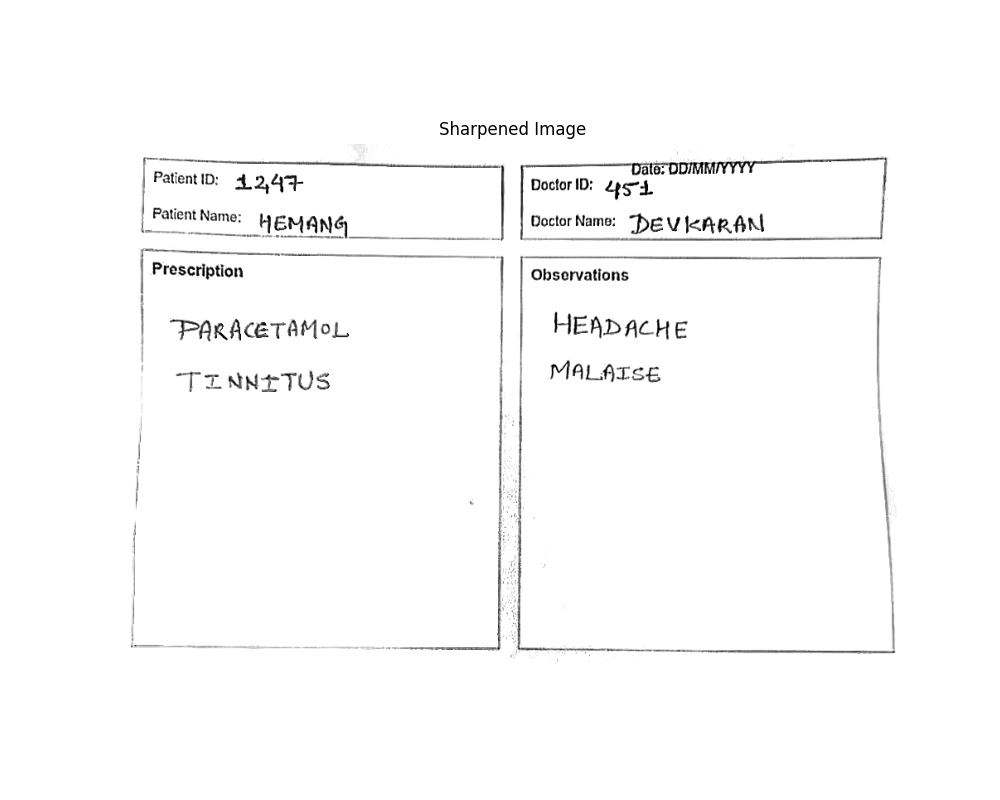 Sharpened Image
Patient ID: 1247
Patient Name: HEMANG
Date: DD/MM/YYYY
Doctor ID: 451
Doctor Name: DEVKARAN
Prescription
PARACETAMOL
TINNITUS
Observations
HEADACHE
MALAISE